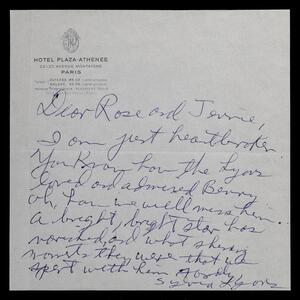 HOTEL PLAZA-ATHENÉE
23-27, AVENUE MONTAIGNE
PARIS
Dear Rose and Jennie,
I am just heartbroken.
You know how the Lyons
loved and admired Benny
oh, how we will miss him.
a bright, bright star has
vanished, and what
moments they were that we
spent with him. Fondly
Sylvia Lyons